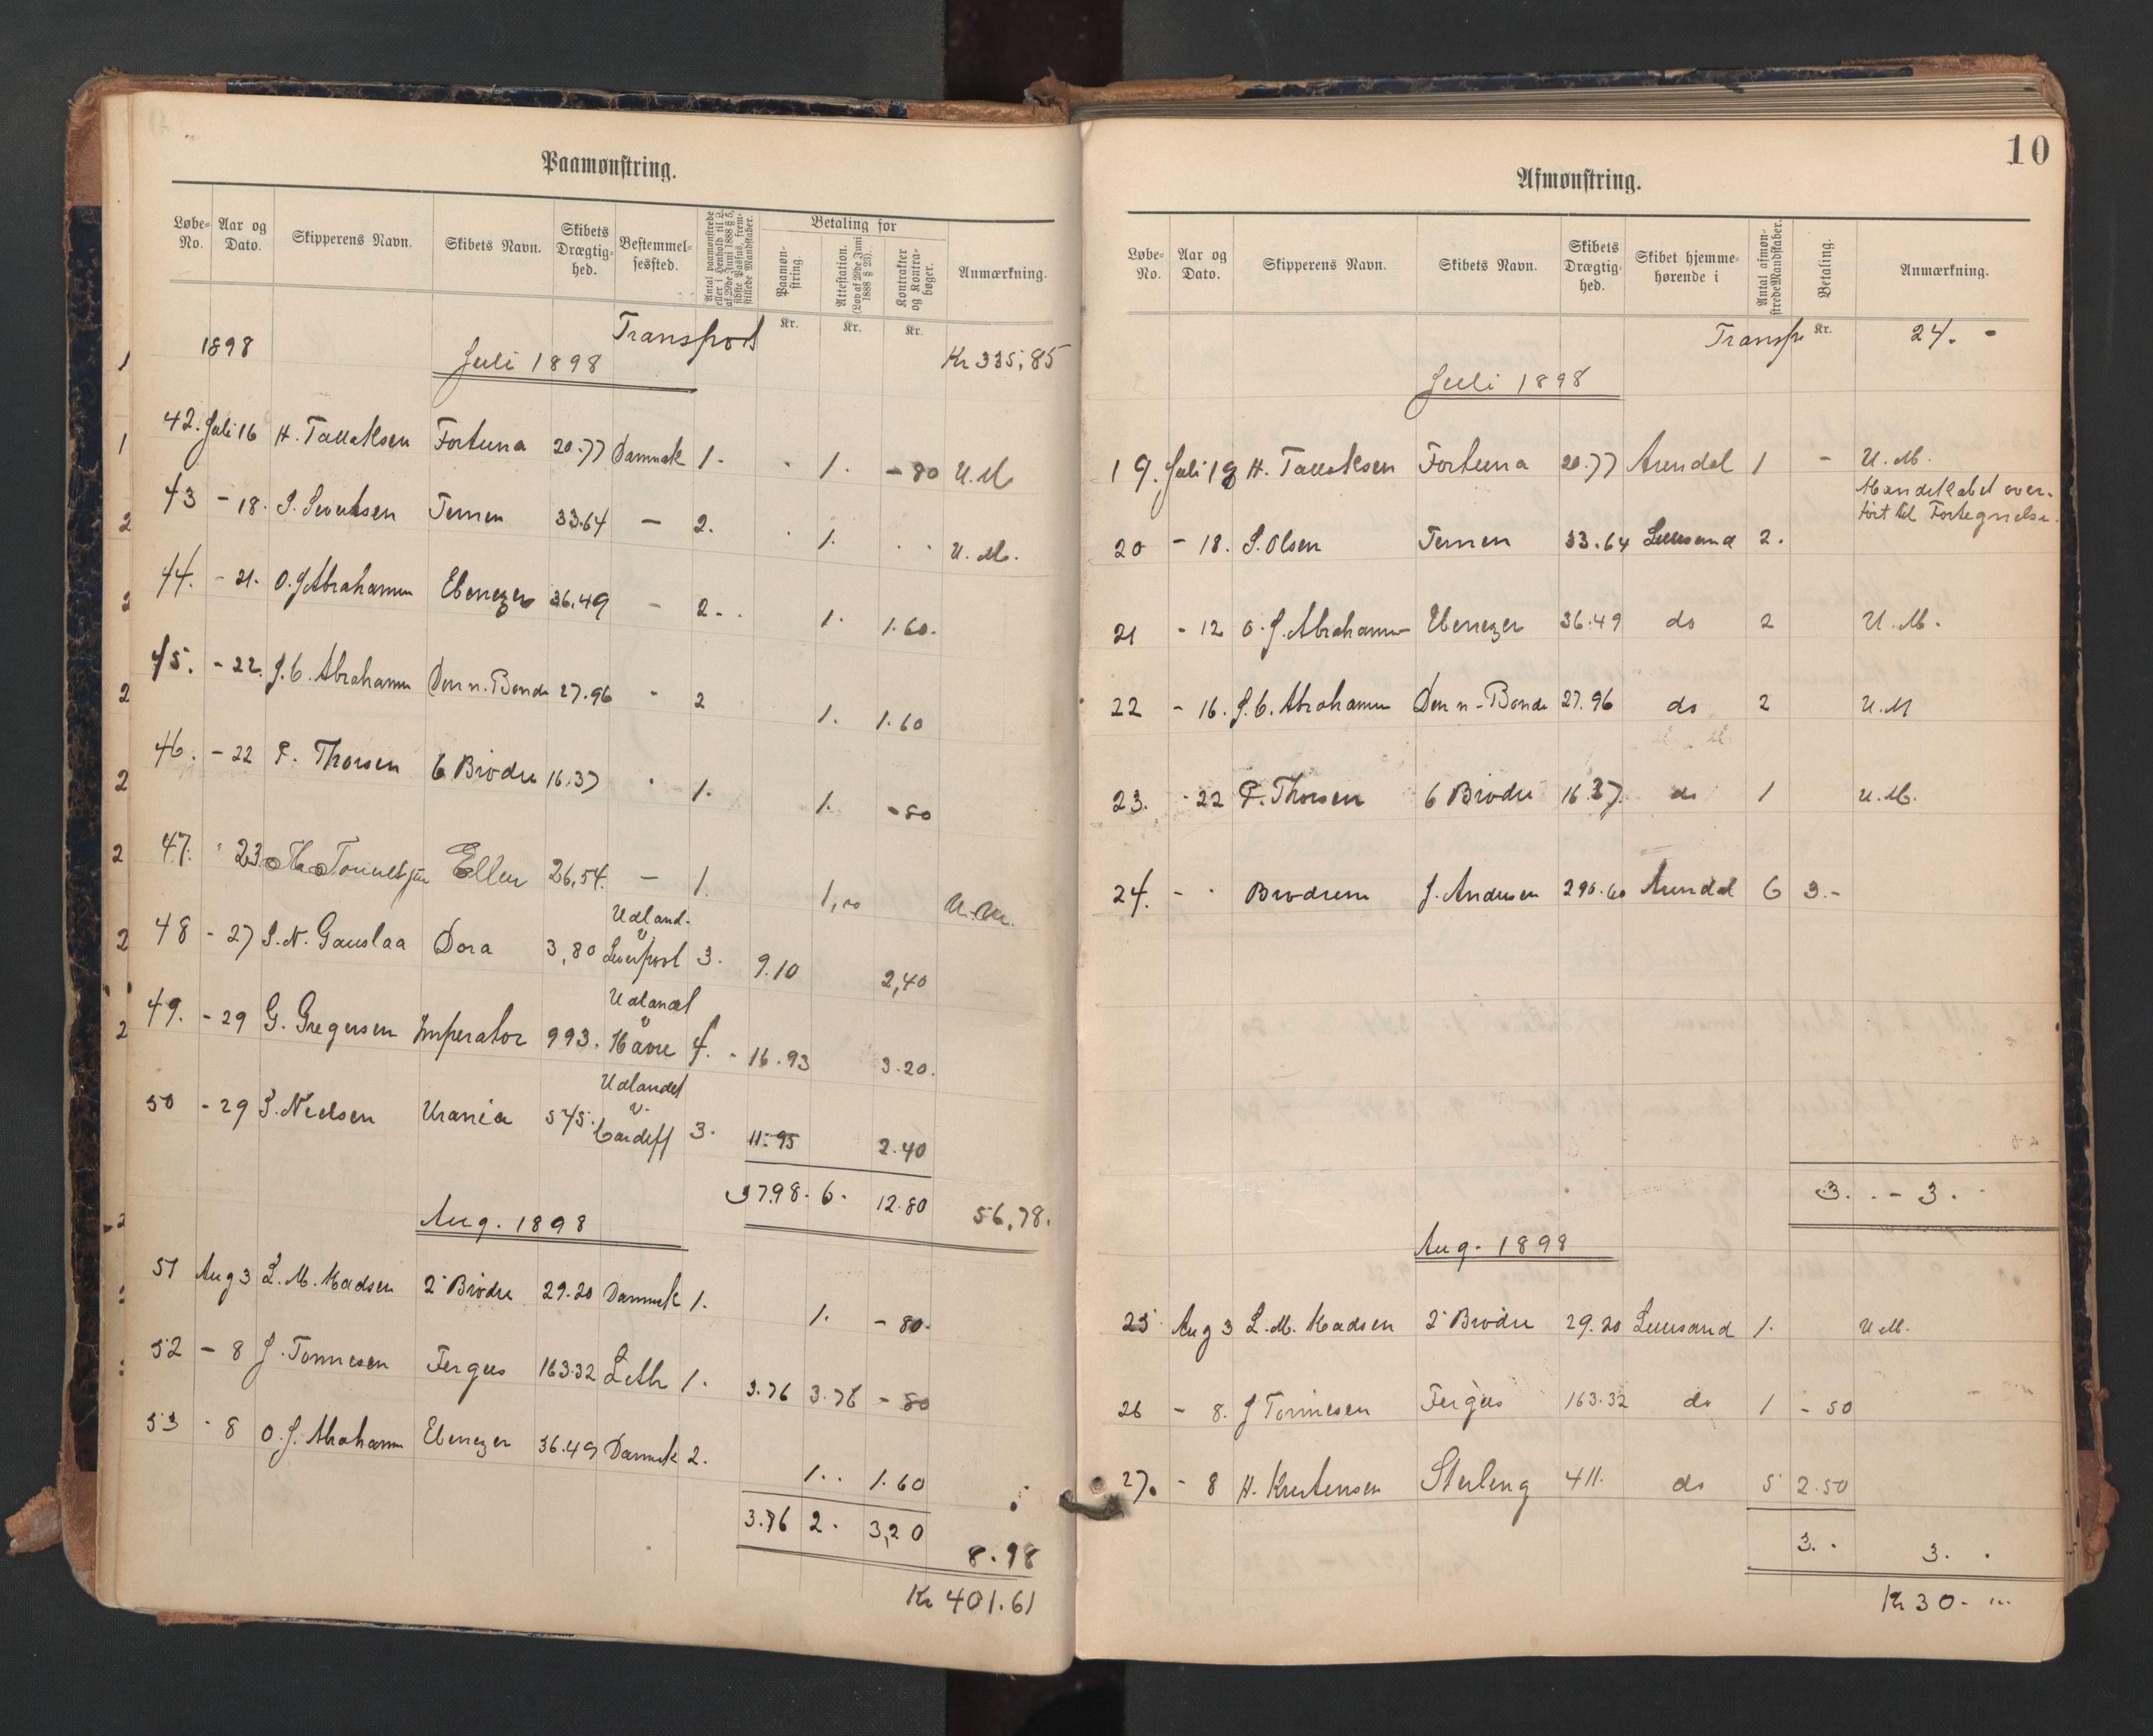 Paamønstring.
Løbe-No. Aar og Dato. Skipperens Navn. Skibets Navn. Skibets Drægtighed. Bestemmelsessted. Antal paamønstrede eller i Henhold til L. af 29de Juni 1888 § 5, sidste Passus, fremstillede Mandskaber. Betaling for Paamønstring. Attestation. (Lov af 29de Juni 1888 § 23). Kontrakter og Kontrabøger. Anmærkning.
Kr. Kr. Kr.
Transport
1898 Juli 1898 Kr 335,85
42. Juli 16 H. Tallaksen Fortuna 20.77 Danmark 1. 1. - 80 U.M
43 - 18. S. Sevutsen Ternen 33.64 - 2. 1. U. M.
44. - 21. O. J Abrahamsen Ebenezer 36.49 - 2. 1. 1.60.
45. - 22. J. C. Abrahamsen Den n. Bonde 27.96 " 2 1. 1.60
46. - 22 P. Thorsen 6 Brødre 16.37 " 1. 1. - 80
47. " 23. Ellen 26,54. - 1. 1,00 U.M.
48 - 27 S. N. Gauslaa Dora 3,80 Udland. v Liverpool 3. 9.10 2,40
49. - 29 G. Gregersen Imperator 993. Udlandet v Havre 4. - 16.93 3.20.
50 - 29 S. Nielsen Urania 575. Udlandet v. Cardiff 3. 11.95 2.40
37.98. 6. 12.80 56,78.
Aug. 1898
51 Aug 3 L. M. Madsen 2 Brødre 29.20 Danmark 1. 1. - 80.
52 - 8 J. Tønnesen Fergus 163.32 Leith 1. 3.76 3.76 - 80
53 - 8 O. J. Abrahamsen Ebenezer 36.49 Danmark 2. 1. 1.60
3.76 2. 3,20 8.98
Kr 401.61
10
Afmønstring.
Løbe-No. Aar og Dato. Skipperens Navn. Skibets Navn. Skibets Drægtighed. Skibet hjemmehørende i Antal afmønstrede Mandskaber. Betaling. Anmærkning.
Kr.
Transp 24. -
Juli 1898
19. Juli 18 H. Tallaksen Fortuna 20.77 Arendal 1 - U. M.
Mandskabet over-
ført til Fortegnelse.
20 - 18. S. Olsen Ternen 33.64 Lillesand 2.
21 - 12 O. J. Abrahamsen Ebenezer 36.49 do 2 U. M.
22 - 16. J. C. Abrahamsen Den n. Bonde 27.96 do 2 U.M
23. - 22 P. Thorsen 6 Brødre 16.37. do 1 U.M.
24. - " Brødrene J. Andersen 290.60 Arendal 6 3.-
3. - 3.
Aug. 1898
25 Aug 3 L. M. Madsen 2 Brødre 29.20 Lillesand 1. U M.
26 - 8. J Tønnesen Fergus 163.32 do 1 - 50
27. - 8 H. Kristensen Sterling 411. do 5 2.50
3. 3.
Kr 30. -